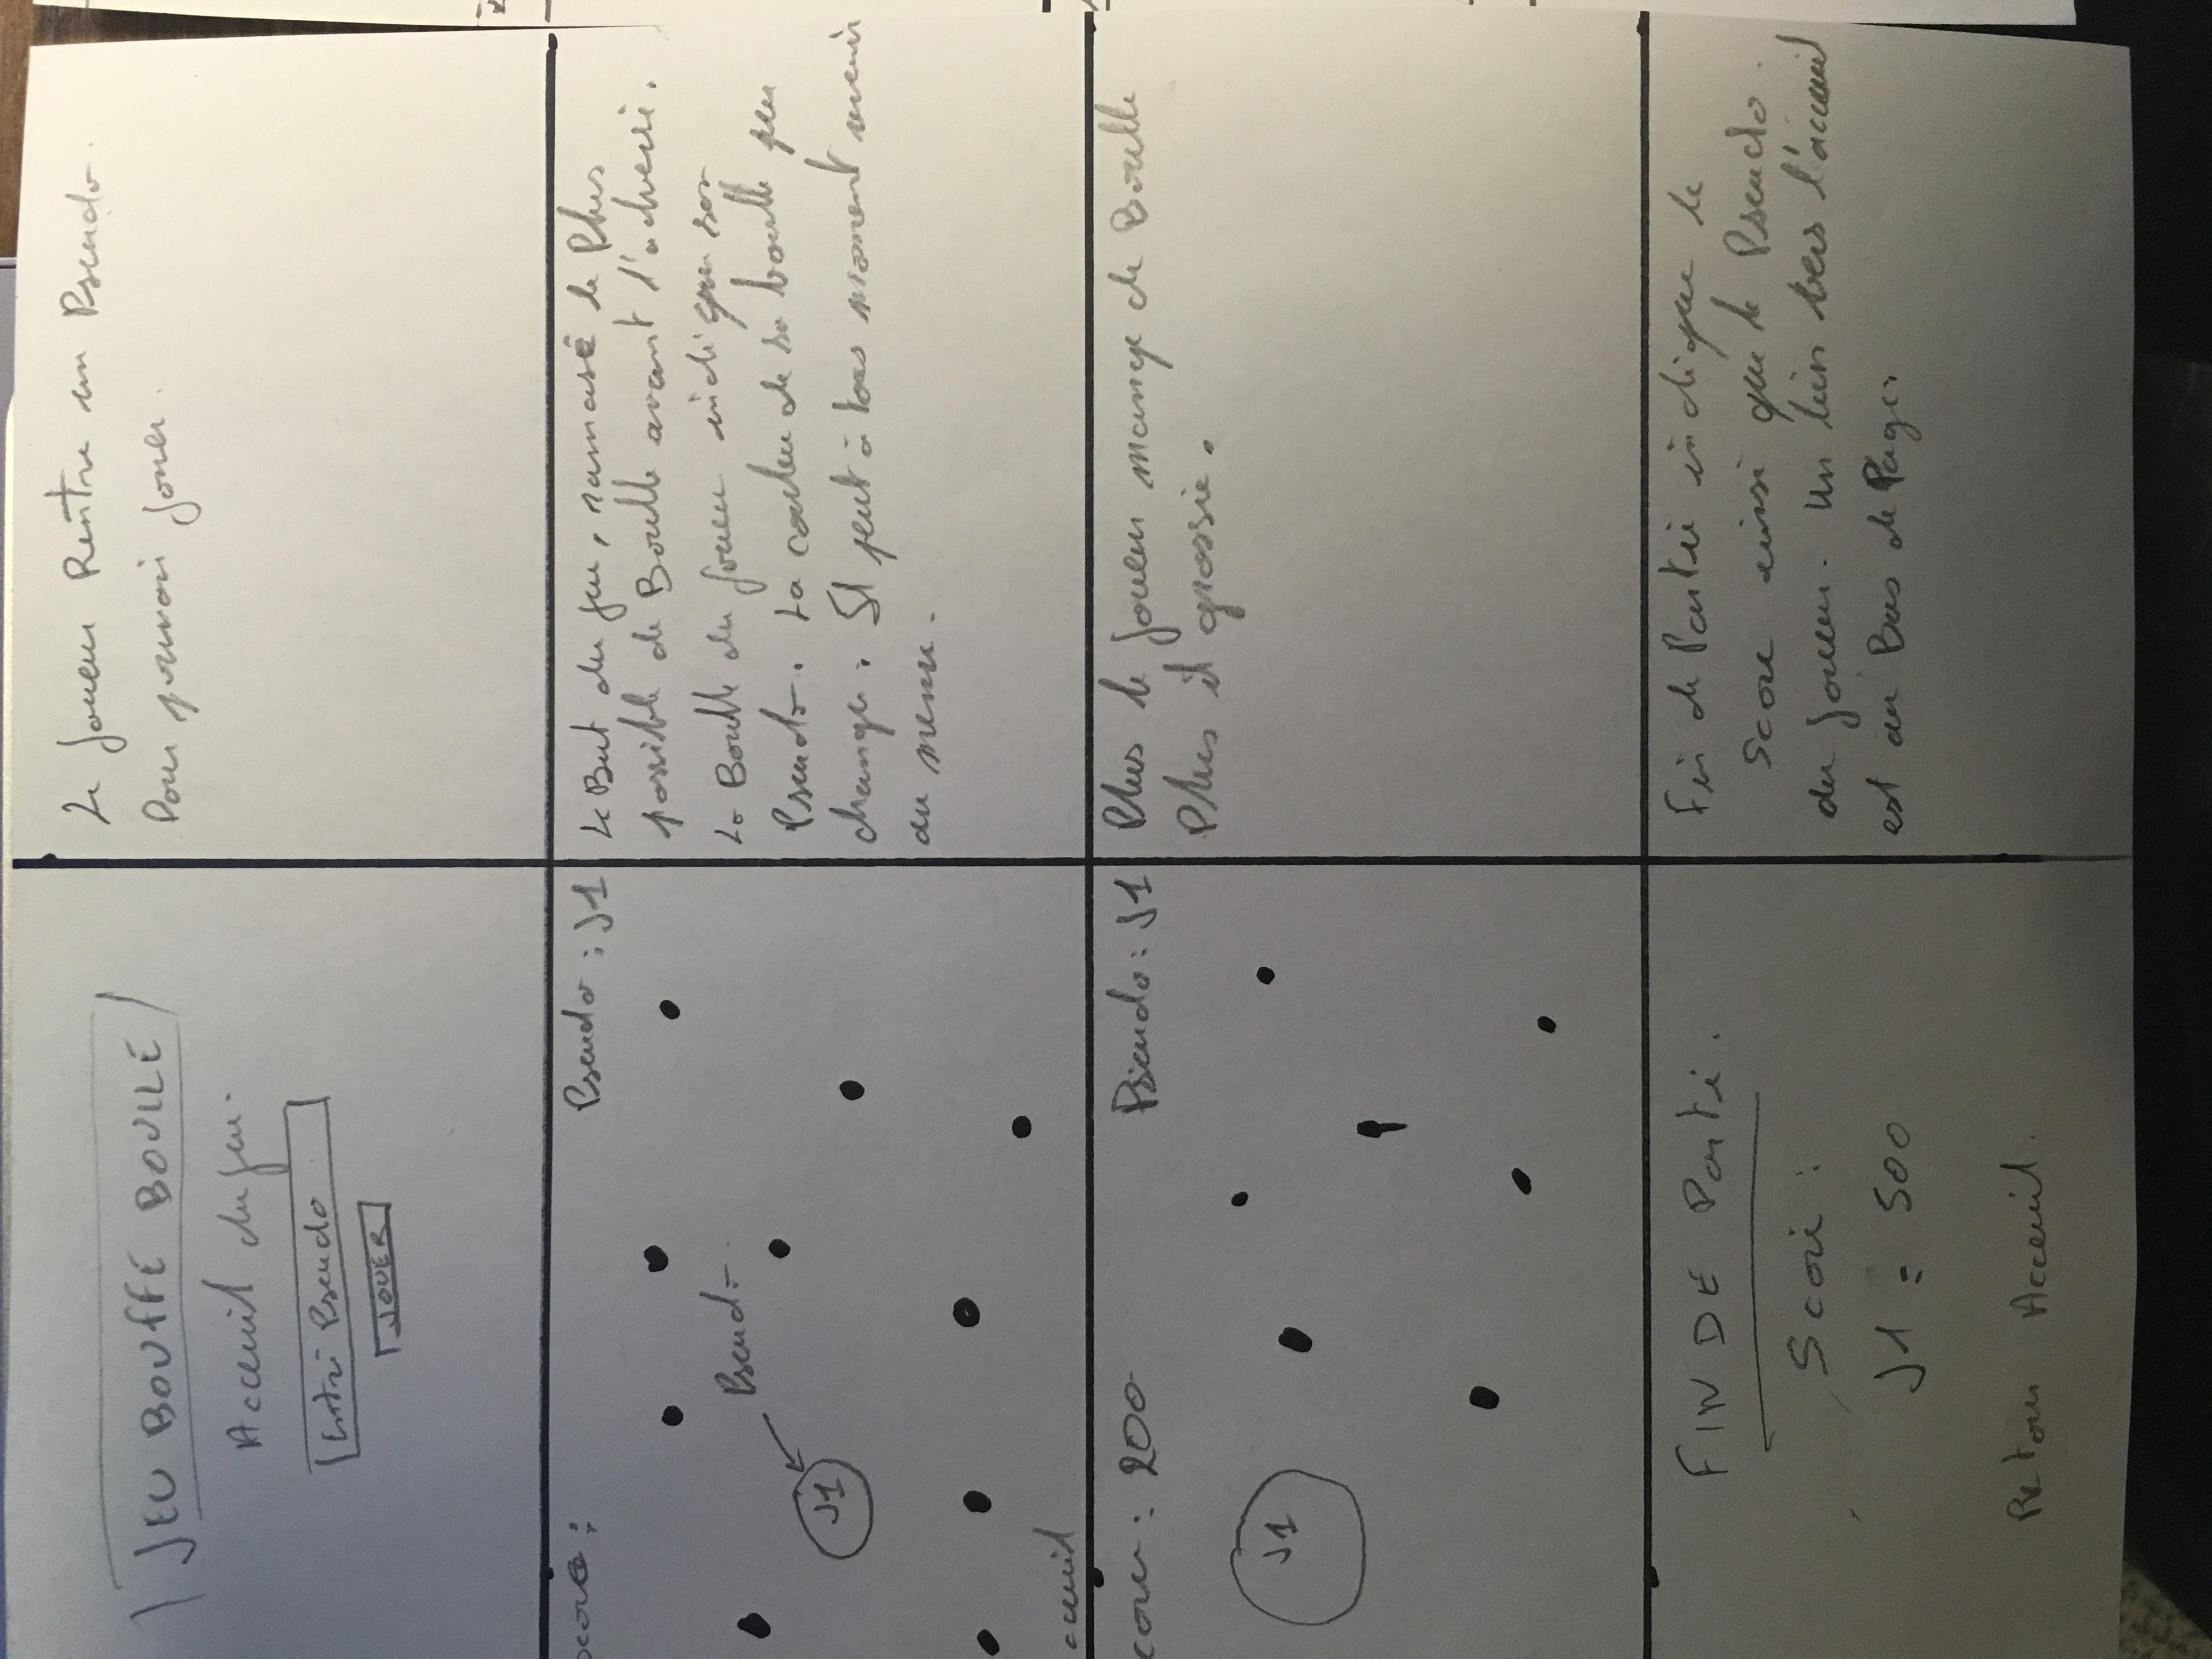 JEU BOUFFE BOULLE
Acceuil du jeu.
Entré Pseudo
JOUER
Le joueur Rentre un Pseudo.
Pour pouvoir jouer.
score :
Pseudo : J1
Pseudo
J1
cceuil
Le But du jeu, ramasé le Plus
possible de Boulle avant l'adversé.
La Boulle du joueur indique son
Pseudo. La couleu de sa boulle peu
changer. Il peut à tous moment revenir
au menu.
core : 200
Pseudo : J1
J1
Plus le joueur mange de Boulle
Plus il grossie.
FIN DE Parti.
Score :
J1 = 500
Retour Acceuil.
Fin de Partie indique le
Score ainsi que le Pseudo
du joueur. Un lien vers l'acceuil
est au Bas de Page.